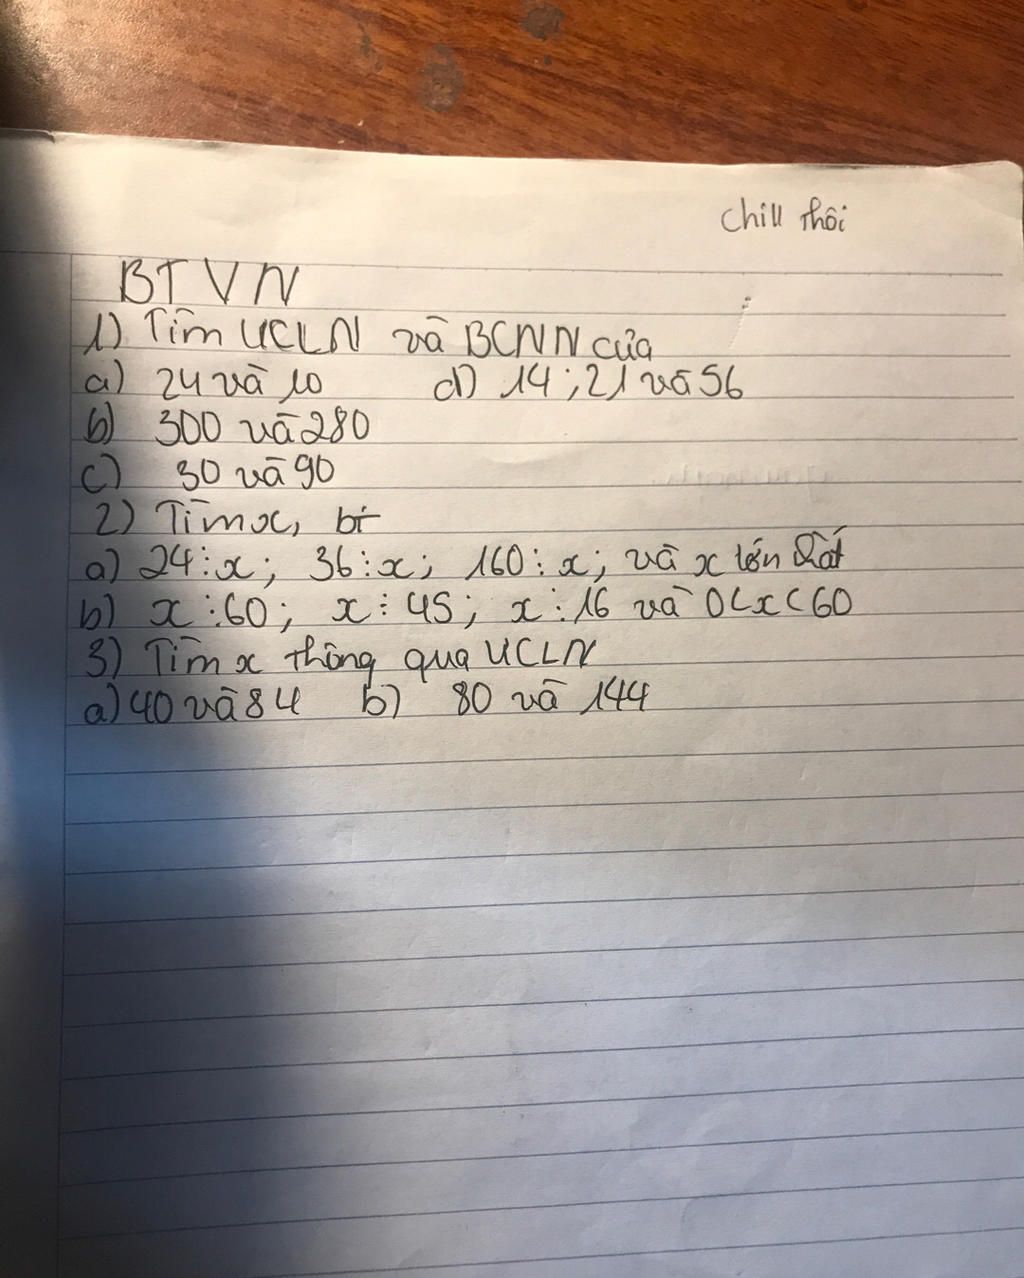 Chill thôi
BTVN
1) Tìm ƯCLN và BCNN của
a) 24 và 10 d) 14; 21 và 56
b) 300 và 280
c) 30 và 90
2) Tìm x, bt
a) 24⋮x; 36⋮x; 160⋮x; và x lớn nhất
b) x⋮60; x⋮45; x⋮16 và 0<x<60
3) Tìm x thông qua ƯCLN
a) 40 và 84 b) 80 và 144